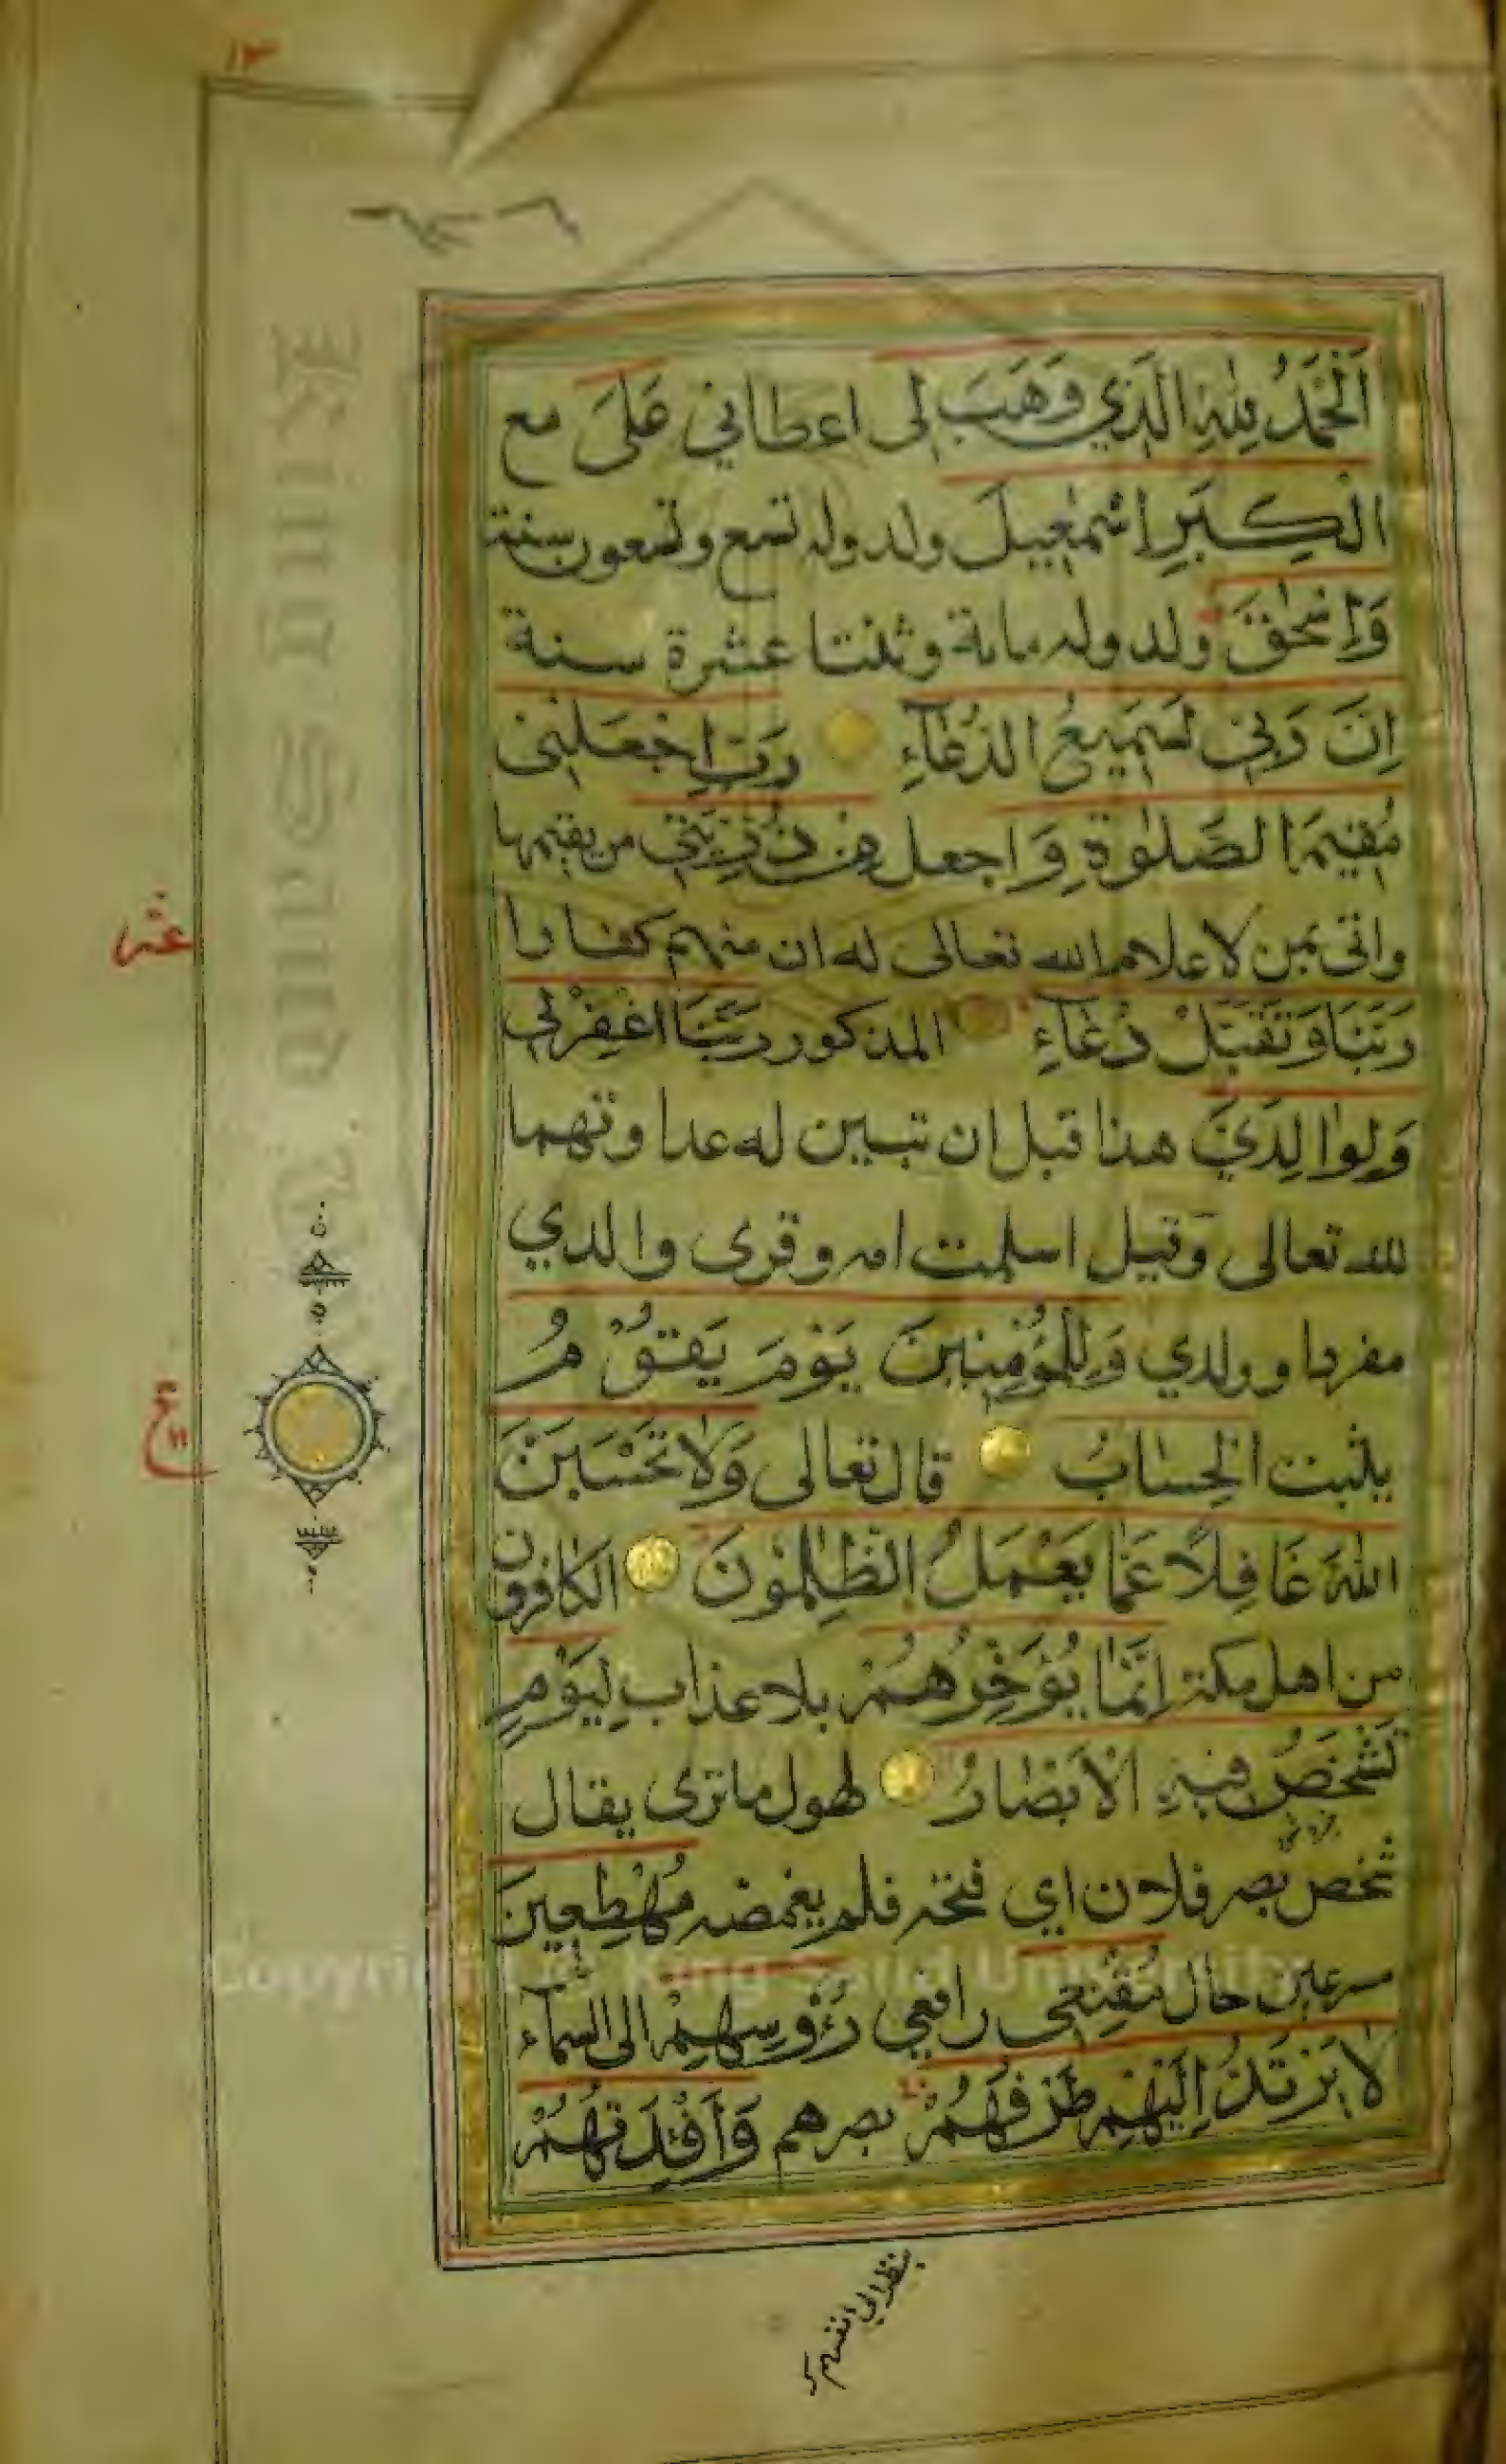 ١٣
اَلْحَمْدُ لِلّٰهِ الَّذِي وَهَبَ لي اعطاني عَلَى مع
الْكِبَرِ اِسْمٰعِيلَ ولد وله تسع وتسعون سنة
وَاِسْحٰقَ ولد وله ماية وثنتا عشرة سنة
اِنَّ رَبِّي لَسَمِيعُ الدُّعَآءِ رَبِّ اجْعَلْنِي
مُقِيمَ الصَّلٰوةِ وَ اجعل مِنْ ذُرِّيَّتِي من يقيمها
واتى بمن لاعلام الله تعالى له ان منهم كفارا
رَبَّنَا وَتَقَبَّلْ دُعَآءِ المذكور رَبَّنَا اغْفِرْ لِي
وَلِوٰالِدَيَّ هذا قبل ان تبين له عداوتهما
لله تعالى وقيل اسلمت امه وقرى والدي
مفردا وولدي وَلِلْمُؤْمِنِينَ يَوْمَ يَقُومُ
يثبت الْحِسٰابُ قال تعالى وَلٰا تَحْسَبَنَّ
اللّٰهَ غَافِلًا عَمّٰا يَعْمَلُ الظّٰلِمُونَ الكافرون
من اهل مكة اِنَّمٰا يُؤَخِّرُهُمْ بلا عذاب لِيَوْمٍ
تَشْخَصُ فِيهِ الْاَبْصٰارُ لهول ما ترى يقال
شخص بصر فلان اي فتحه فلم يغمضه مُهْطِعِينَ
مسرعين حال مُقْنِعِي رافعي رُءُوسِهِمْ الى السمآء
لٰا يَرْتَدُّ اِلَيْهِمْ طَرْفُهُمْ بصرهم وَاَفْئِدَتُهُمْ
عشر
ع
Copyright © King Saud University